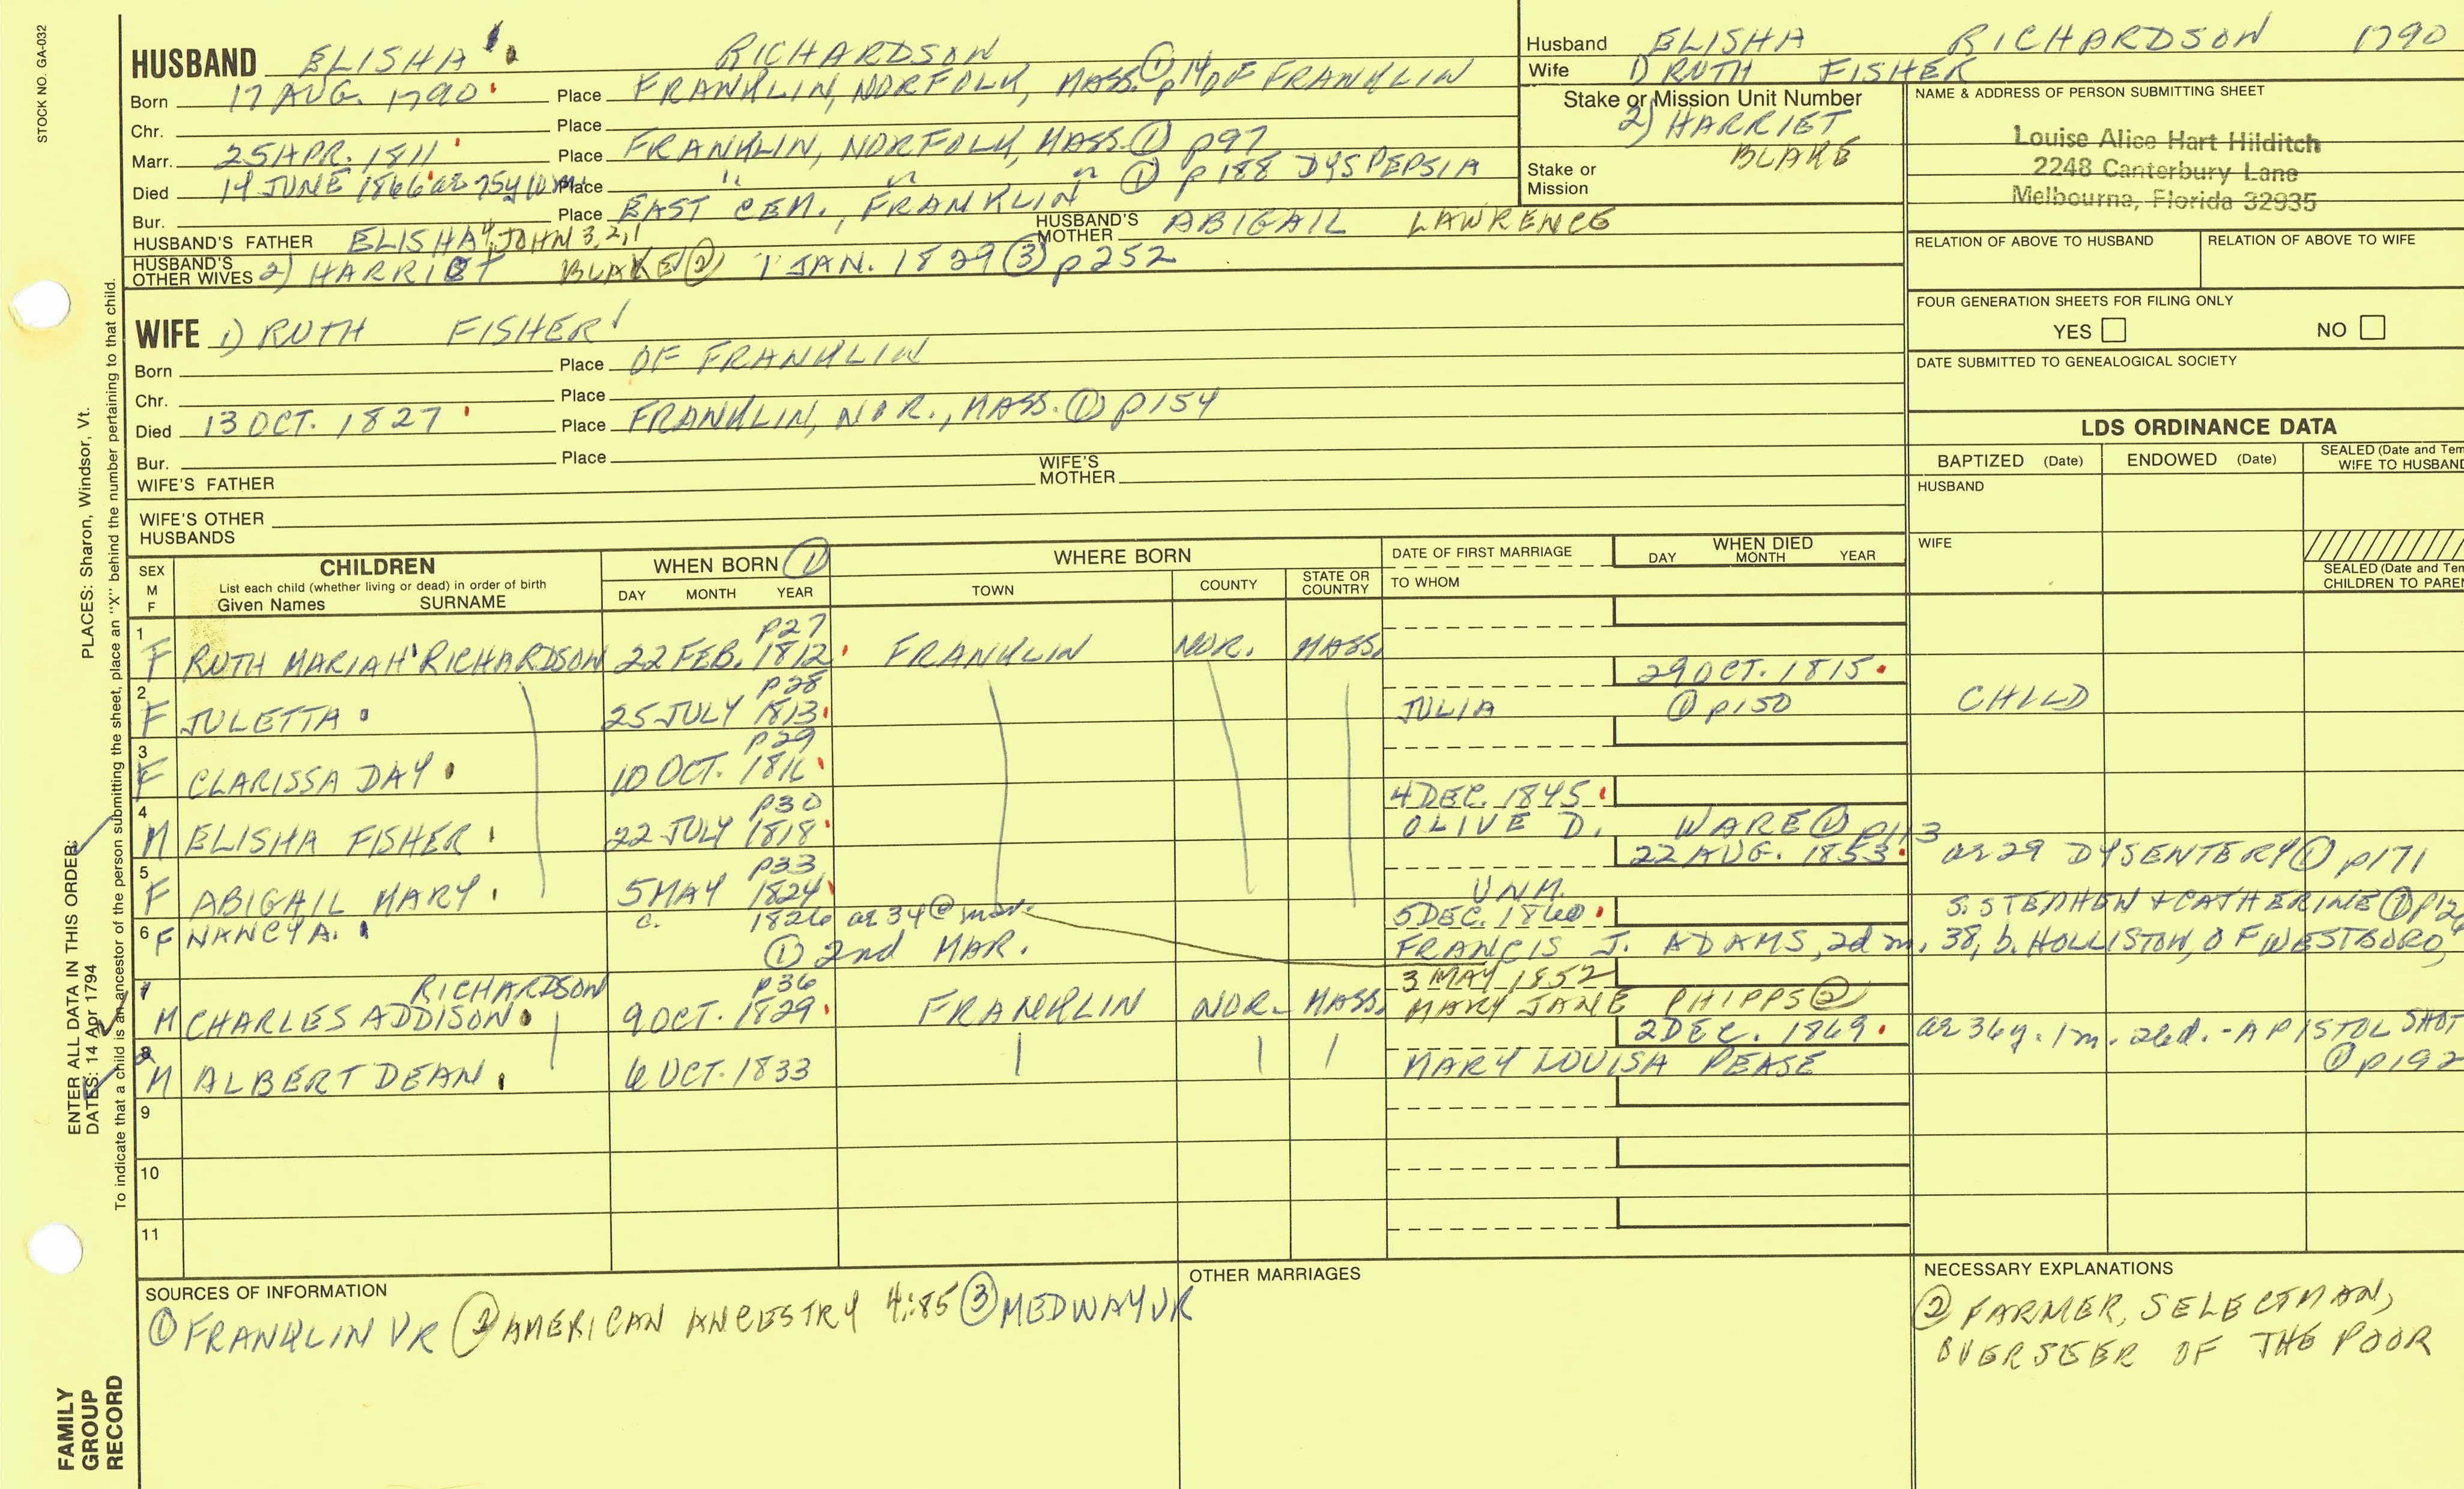 STOCK NO. GA-032
HUSBAND ELISHA RICHARDSON
Born 17 AUG. 1790 Place FRANKLIN, NORFOLK, MASS. ① p14 OF FRANKLIN
Chr. Place
Marr. 25 APR. 1811 Place FRANKLIN, NORFOLK, MASS. ① p97
Died 14 JUNE 1866 ae 75y 10m Place " " " ① p188 DYSPEPSIA
Bur. Place EAST CEM., FRANKLIN
HUSBAND'S FATHER ELISHA 4, JOHN 3,2,1 HUSBAND'S MOTHER ABIGAIL LAWRENCE
HUSBAND'S OTHER WIVES 2) HARRIET BLAKE ② 1 JAN. 1829 ③ p252
Husband ELISHA RICHARDSON 1790
Wife 1) RUTH FISHER
Stake or Mission Unit Number
2) HARRIET
BLAKE
Stake or
Mission
NAME & ADDRESS OF PERSON SUBMITTING SHEET
Louise Alice Hart Hilditch
2248 Canterbury Lane
Melbourne, Florida 32935
RELATION OF ABOVE TO HUSBAND RELATION OF ABOVE TO WIFE
FOUR GENERATION SHEETS FOR FILING ONLY
YES NO
DATE SUBMITTED TO GENEALOGICAL SOCIETY
WIFE 1) RUTH FISHER
Born Place OF FRANKLIN
Chr. Place
Died 13 OCT. 1827 Place FRANKLIN, NOR., MASS. ① p154
Bur. Place
WIFE'S FATHER WIFE'S MOTHER
WIFE'S OTHER
HUSBANDS
LDS ORDINANCE DATA
BAPTIZED (Date) ENDOWED (Date) SEALED (Date and Tem
WIFE TO HUSBAND
HUSBAND
WIFE
SEALED (Date and Tem
CHILDREN TO PAREN
SEX
M
F
CHILDREN
List each child (whether living or dead) in order of birth
Given Names SURNAME
WHEN BORN ①
DAY MONTH YEAR
WHERE BORN
TOWN COUNTY STATE OR COUNTRY
DATE OF FIRST MARRIAGE
TO WHOM
WHEN DIED
DAY MONTH YEAR
1 p27
F RUTH MARIAH RICHARDSON 22 FEB. 1812 FRANKLIN NOR. MASS.
2 p28 29 OCT. 1815
F JULETTA 25 JULY 1813 JULIA ① p150 CHILD
3 p29
F CLARISSA DAY 10 OCT. 1816
4 p30 4 DEC. 1845
M ELISHA FISHER 22 JULY 1818 OLIVE D. WARE ① p113
5 p33 22 AUG. 1853 ae 29 DYSENTERY ① p171
F ABIGAIL MARY 5 MAY 1824 UNM.
6 F NANCY A. c. 1826 ae 34 @ mar. 5 DEC. 1860 S. STEPHEN + CATHERINE ① p126
① 2nd MAR. FRANCIS J. ADAMS, 2d m. 38, b. HOLLISTON, OF WESTBORO
7 RICHARDSON p36 3 MAY 1852
M CHARLES ADDISON 9 OCT. 1829 FRANKLIN NOR. MASS. MARY JANE PHIPPS ②
8 2 DEC. 1869 ae 36y. 1m. 26d. - A PISTOL SHOT
① p192
M ALBERT DEAN 6 OCT. 1833 MARY LOUISA PEASE
9
10
11
SOURCES OF INFORMATION
① FRANKLIN VR ② AMERICAN ANCESTRY 4:85 ③ MEDWAY VR
OTHER MARRIAGES
NECESSARY EXPLANATIONS
② FARMER, SELECTMAN,
OVERSEER OF THE POOR
ENTER ALL DATA IN THIS ORDER:
DATES: 14 Apr 1794
PLACES: Sharon, Windsor, Vt.
To indicate that a child is an ancestor of the person submitting the sheet, place an "X" behind the number pertaining to that child.
FAMILY
GROUP
RECORD